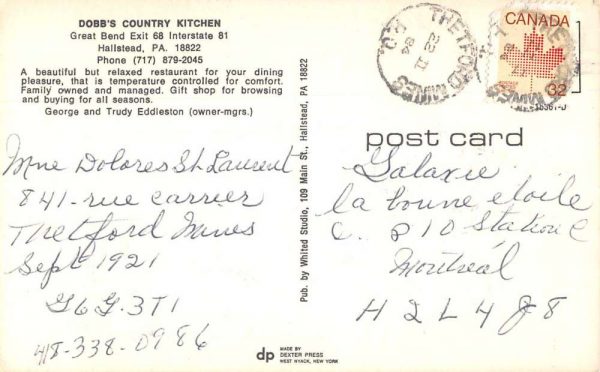 DOBB'S COUNTRY KITCHEN
Great Bend Exit 68 Interstate 81
Hallstead, PA. 18822
Phone (717) 879-2045
A beautiful but relaxed restaurant for your dining
pleasure, that is temperature controlled for comfort.
Family owned and managed. Gift shop for browsing
and buying for all seasons.
George and Trudy Eddleston (owner-mgrs.)
Mme Dolores St Laurent
841-rue Carrier
Thetford Mines
Sept 1921
G6G.3T1
418-338-0986
Pub. by Whited Studio, 109 Main St., Hallstead, PA. 18822
dp
MADE BY
DEXTER PRESS
WEST NYACK, NEW YORK
THETFORD MINES
P.Q.
22 II
84
CANADA
32
post card
Galaxie
la bonne etoile
C. P 10 Station C
Montréal
H2L4J8